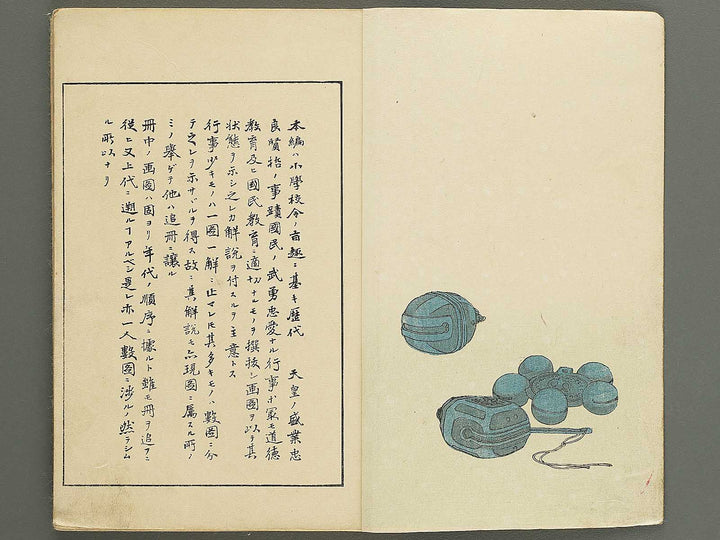 本編ハ小學校令ノ旨趣ニ基キ歴代　天皇ノ盛業忠
良賢哲ノ事蹟國民ノ武勇忠愛ナル行事等冣モ道德
教育及ヒ國民教育ニ適切ナルモノヲ撰抜シ画圖ヲ以テ其
狀態ヲ示シ之レカ解說ヲ付スルヲ主意トス
行事少キモノハ一圖一解ニ止マレ𪜈其多キモノハ數圖ニ分
テ之レヲ示サヾルヲ得ス故ニ其解說モ亦現圖ニ属スル所ノ
ミノ舉ゲテ他ハ追冊ニ讓ル
冊中ノ画圖ハ固ヨリ年代ノ順序ニ據ルト雖モ冊ヲ追フニ
從ヒ又上代ニ遡ルヿアルベシ是レ亦一人數圖ニ涉ルノ然ラシム
ル所以ナリ